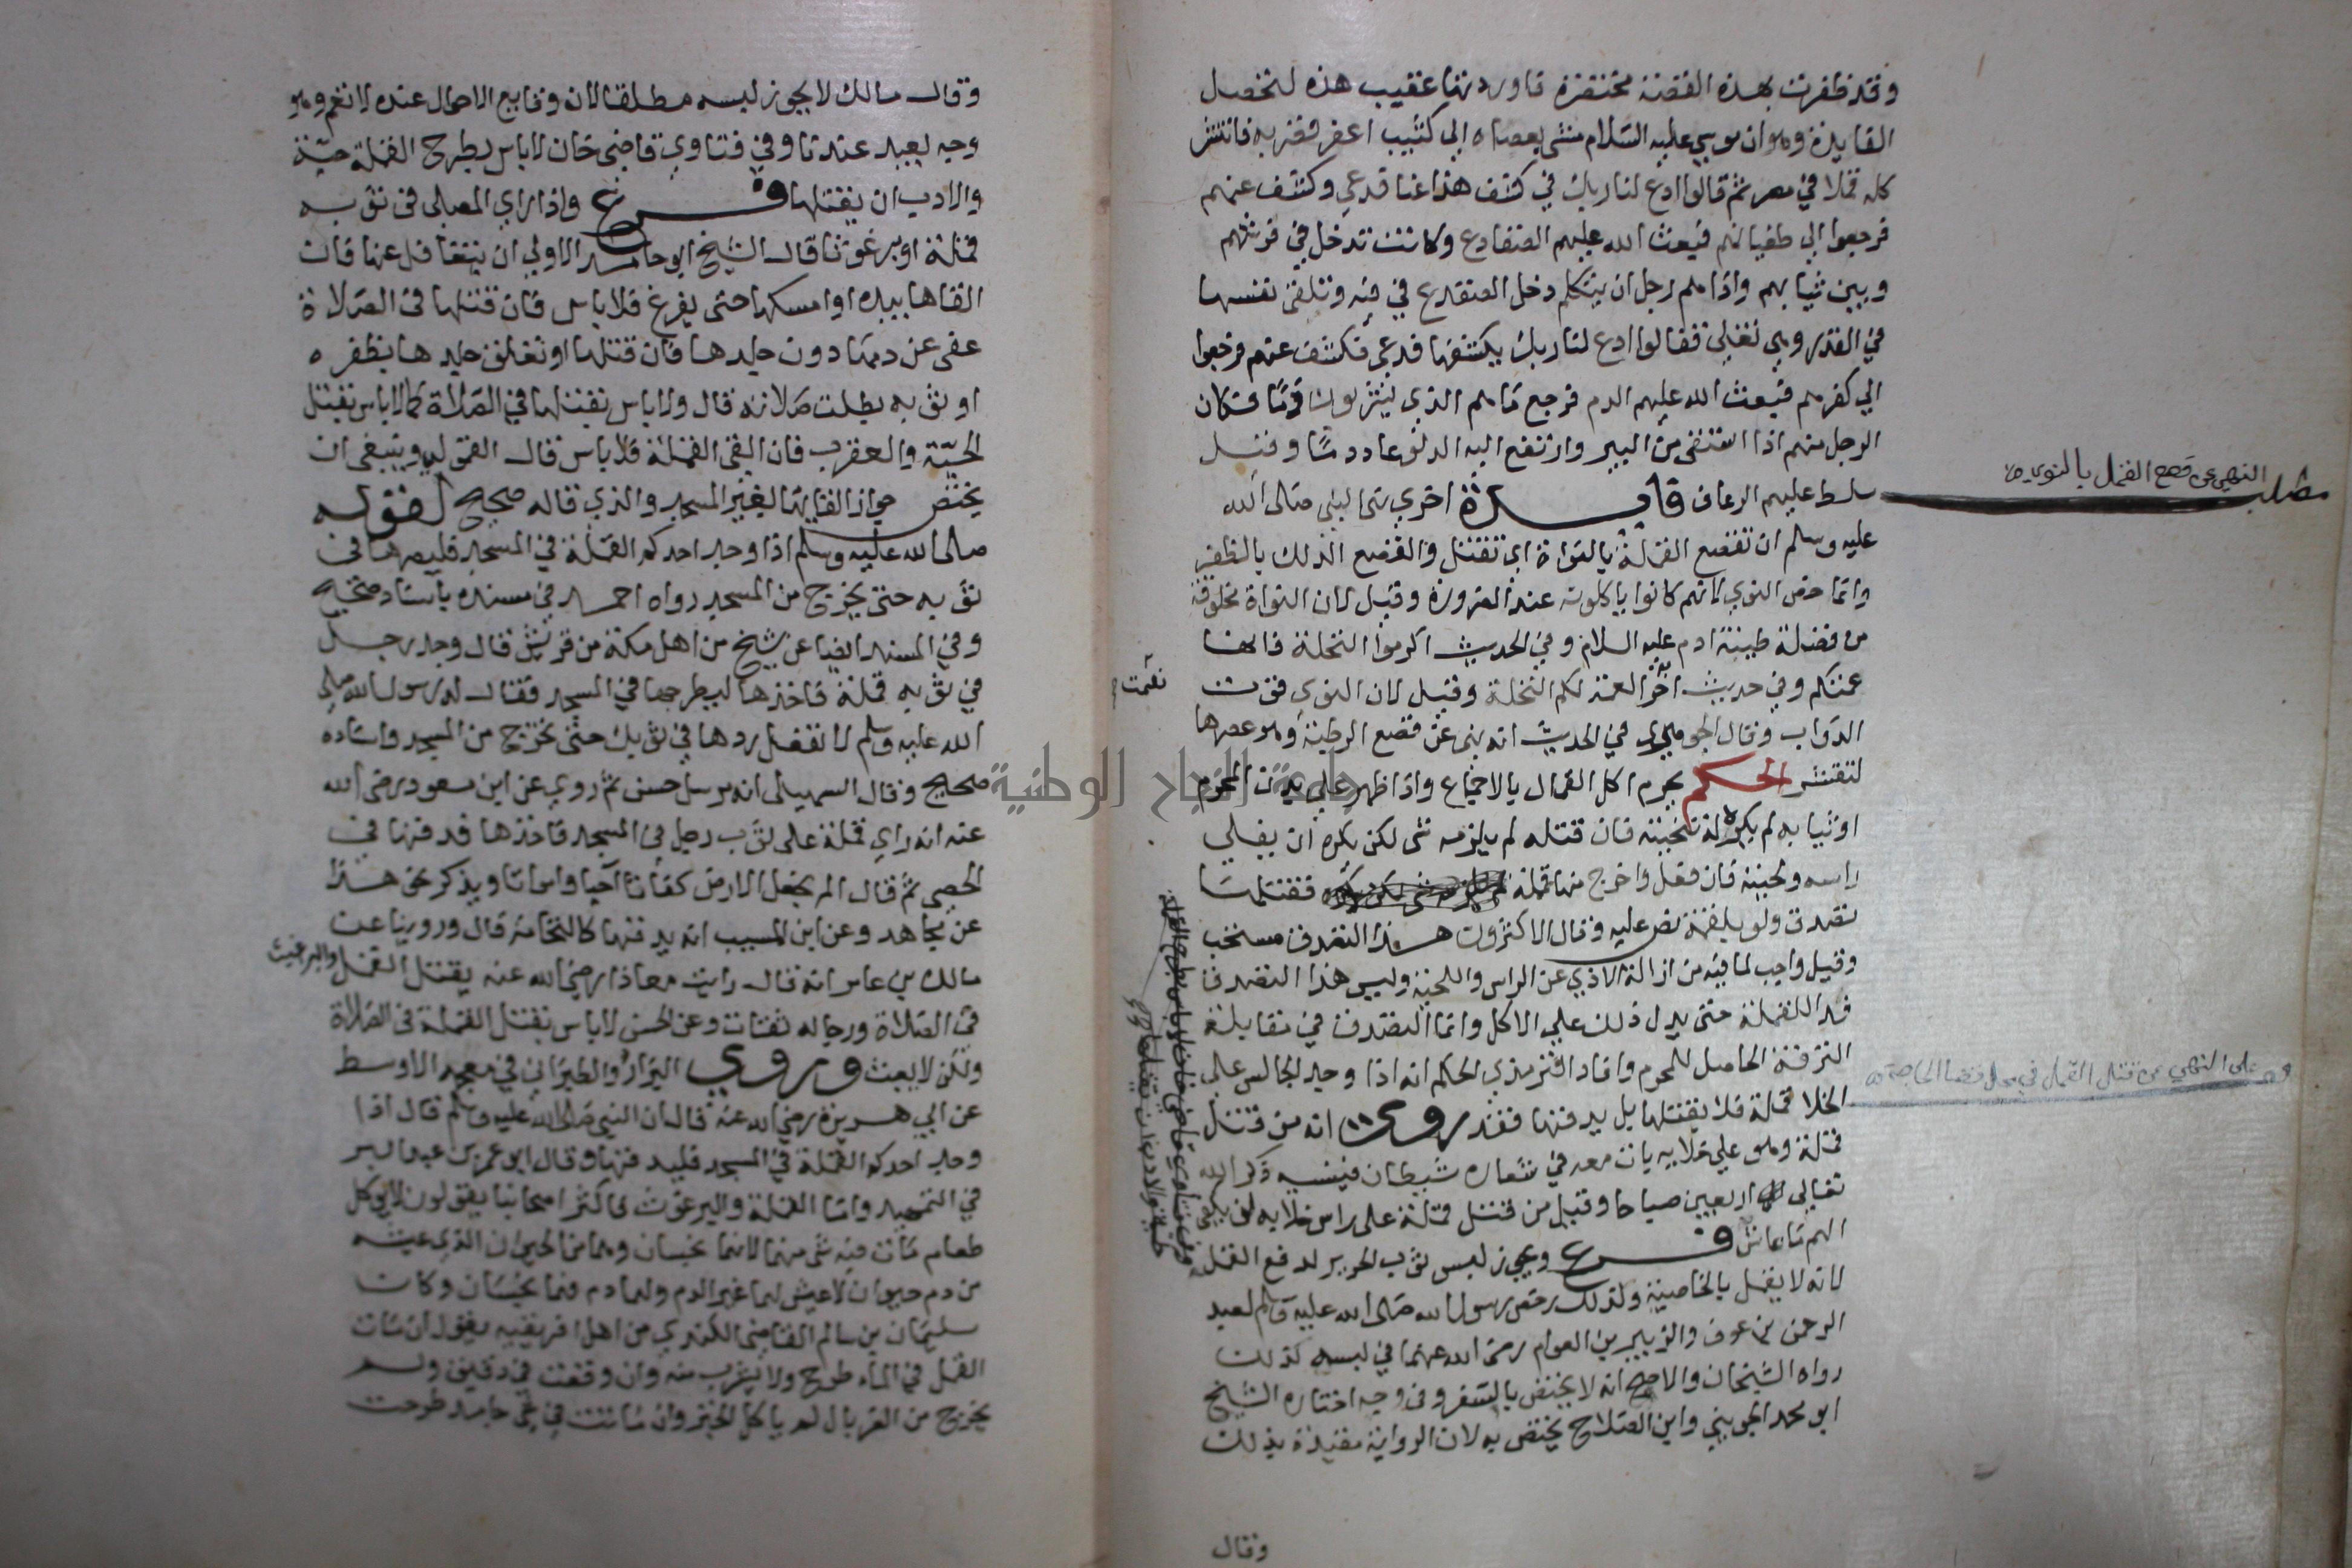 وقد ظفرت بهذه القصة مختصرة فاوردتها عقيب هذه لتحصل
الفايدة وهو ان موسي عليه السلام مشي بعصاه الي كثيب اعفر فضربه فانتشر
كله قملا في مصر ثم قالوا ادع لنا ربك في كشف هذا عنا فدعي وكشف عنهم
فرجعوا الي طغيانهم فبعث الله عليهم الضفادع وكانت تدخل في فرشهم
وبين ثيابهم واذا هم رجل ان يتكلم دخل الضفدع في فيه وتلقي نفسها
في القدر وهي تغلي فقالوا ادع لنا ربك يكشفها فدعي فكشف عنهم فرجعوا
الي كفرهم فبعث الله عليهم الدم فرجع ماهم الذي يشربون دما فكان
الرجل منهم اذا استقي من البير وارتفع اليه الدلو عاد دما وقيل
سلط عليهم الرعاف فايدة اخري نهي النبي صلى الله
عليه وسلم ان تقصع القملة بالنواة اي تقتل والقصع الدلك بالظفر
وانما خص النوي لانهم كانوا ياكلونه عند الضرورة وقيل لان النواة مخلوقة
من فضلة طينة ادم عليه السلام وفي الحديث اكرموا النخلة فانها
عمتكم وفي حديث اخر نعمت العمة لكم النخلة وقيل لان النوي قوت
الدواب وقال الجوهري في الحديث انه نهي عن قصع الرطبة وهو عصرها
لتقشر الحكم يحرم اكل القمل بالاجماع واذا ظهر علي بدن المحرم
او ثيابه لم يكره له تنحيته فان قتله لم يلزمه شي لكن يكره ان يفلي
راسه ولحيته فان فعل واخرج منها قملة فقتلها
تصدق ولو بلقمة نص عليه وقال الاكثرون هذا التصدق مستحب
وقيل واجب لما فيه من ازالة الاذي عن الراس واللحية وليس هذا التصدق
فدا للقملة حتى يدل ذلك علي الاكل وانما التصدق في مقابلة
الترفه الحاصل للمحرم وافاد الترمذي الحكيم انه اذا وجد الجالس علي
الخلا قملة فلا يقتلها بل يدفنها فقد روي انه من قتل
قملة وهو علي خلايه بات معه في شعاره شيطان فينسيه ذكر الله
تعالي اربعين صباحا وقيل من قتل قملة على راس خلايه لم يكفي
الهم ما عاش فرع ويجوز لبس ثوب الحرير لدفع القمل
لانه لا يقمل بالخاصية ولذلك رخص رسول الله صلى الله عليه وسلم لعبد
الرحمن بن عوف والزبير بن العوام رضي الله عنهما في لبسه لذلك
رواه الشيخان والاصح انه لا يختص بالسفر وفي وجه اختاره الشيخ
ابو محمد الجويني وابن الصلاح يختص به لان الرواية مقيدة بذلك
وقال
مطلب النهي عن قصع القمل بالنوي
على النهي عن قتل القمل في محل قضا الحاجة
نعمت
وفي فتاوي قاضي خان لا باس بطرح القملة
حية والادب ان يقتلها
وقال مالك لا يجوز لبسه مطلقا لان وقايع الاحوال عنده لا تعم وهو
وجه بعيد عندنا وفي فتاوي قاضي خان لا باس بطرح القملة حية
والادب ان يقتلها فرع واذا راي المصلى في ثوبه
قملة او برغوثا قال الشيخ ابو حامد الاولي ان يتغافل عنها فان
القاها بيده او امسكها حتى يفرغ فلا باس فان قتلها في الصلاة
عفي عن دمها دون جلدها فان قتلها او تعلق جلدها بظفره
او ثوبه بطلت صلاته قال ولا باس بقتلها في الصلاة كما لا باس بقتل
الحية والعقرب فان القي القملة فلا باس قال القمولي وينبغي ان
يختص جواز القايها بغير المسجد والذي قاله صحيح لقوله
صلى الله عليه وسلم اذا وجد احدكم القملة في المسجد فليصرها في
ثوبه حتى يخرج من المسجد رواه احمد في مسنده باسناد صحيح
وفي المسند ايضا عن شيخ من اهل مكة من قريش قال وجد رجل
في ثوبه قملة فاخذها ليطرحها في المسجد فقال له رسول الله صلى
الله عليه وسلم لا تفعل ردها في ثوبك حتى تخرج من المسجد واسناده
صحيح وقال السهيلي انه مرسل حسن ثم روي عن ابن مسعود رضي الله
عنه انه راي قملة على ثوب رجل في المسجد فاخذها فدفنها في
الحصي ثم قال الم نجعل الارض كفاتا احيا وامواتا ويذكر نحو هذا
عن مجاهد وعن ابن المسيب انه يدفنها كالنخامة قال وروينا عن
مالك بن عامر انه قال رايت معاذا رضي الله عنه يقتل القمل والبراغيث
في الصلاة ورجاله ثقات وعن الحسن لا باس بقتل القملة في الصلاة
ولكن لا يعبث وروي البزار والطبراني في معجمه الاوسط
عن ابي هريرة رضي الله عنه قال ان النبي صلى الله عليه وسلم قال اذا
وجد احدكم القملة في المسجد فليدفنها وقال ابو عمر بن عبد البر
في التمهيد واما القملة والبرغوث فاكثر اصحابنا يقولون لا يوكل
طعام مات فيه شي منهما لانهما نجسان وهما من الحيوان الذي عيشه
من دم حيوان لا عيش لهما غير الدم ولهما دم فهما نجسان وكان
سليمان بن سالم القاضي الكندي من اهل افريقيه يقول ان مات
القمل في الماء طرح ولا يشرب منه وان وقعت في دقيق ولم
يخرج من الغربال لم ياكل الخبز وان ماتت في شي جامد طرحت
جامعة النجاح الوطنية